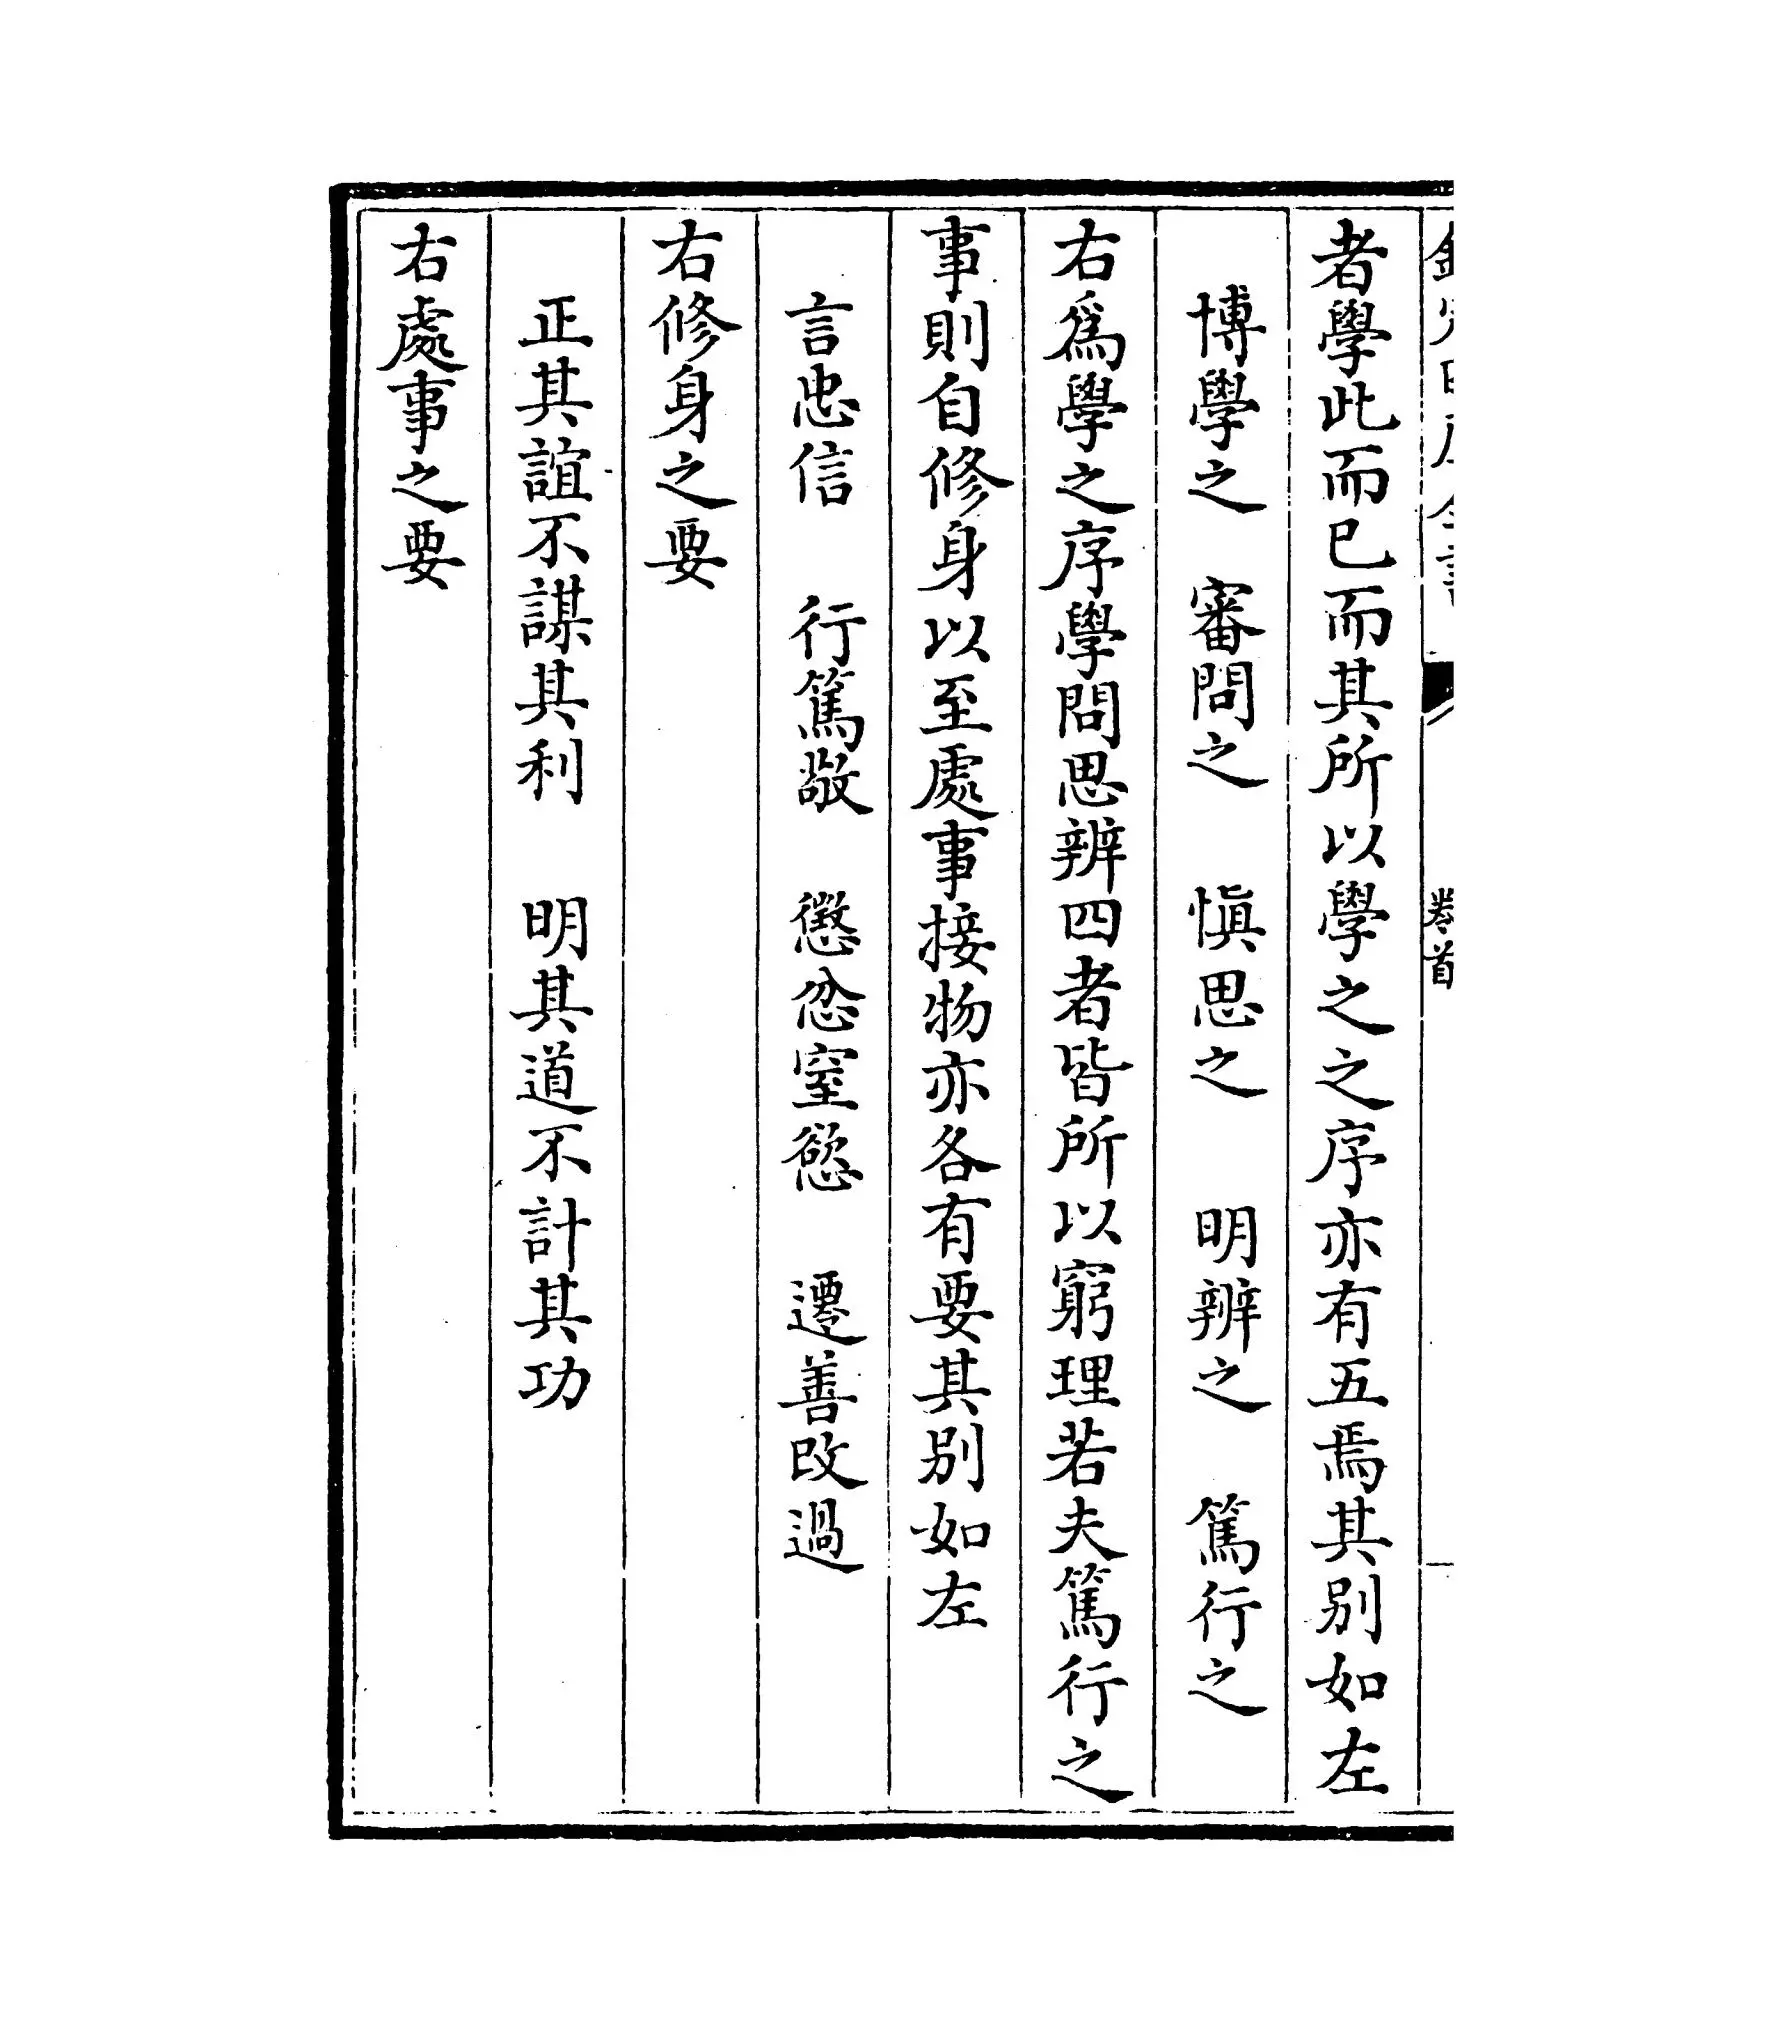 欽定四庫全書
卷首
者學此而已而其所以學之之序亦有五焉其別如左
博學之 審問之 慎思之 明辨之 篤行之
右為學之序學問思辨四者皆所以窮理若夫篤行之
事則自修身以至處事接物亦各有要其別如左
言忠信 行篤敬 懲忿窒慾 遷善改過
右修身之要
正其誼不謀其利 明其道不計其功
右處事之要